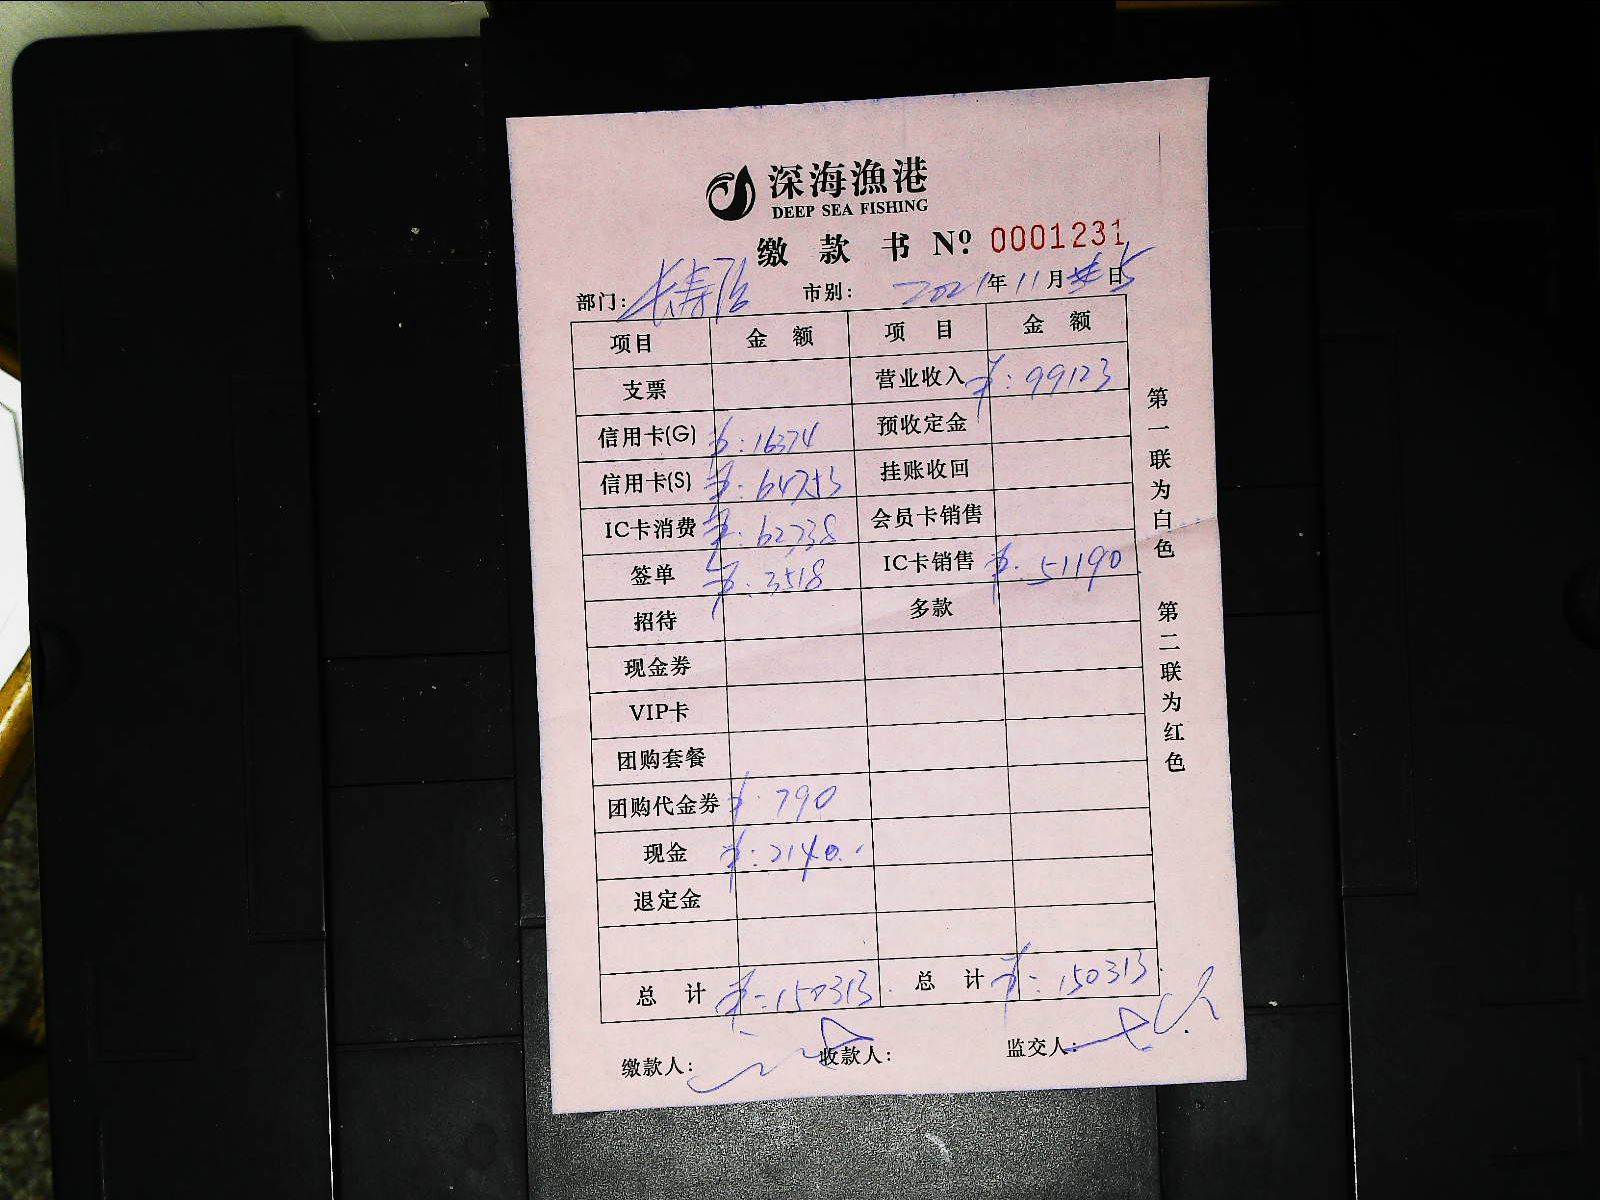 深海漁港
DEEP SEA FISHING
缴款书 Nº 0001231
部门: 长寿 市别: 2021年11月5日
项目 金额 项目 金额
支票 营业收入 ¥:99123
信用卡(G) ¥:16374 预收定金
信用卡(S) ¥:64753 挂账收回
IC卡消费 ¥:62738 会员卡销售
签单 ¥:3518 IC卡销售 ¥:51190
招待 多款
现金券
VIP卡
团购套餐
团购代金券 ¥:790
现金 ¥:2140.
退定金
总计 ¥:150313. 总计 ¥:150313.
缴款人: 收款人: 监交人:
第一联为白色 第二联为红色